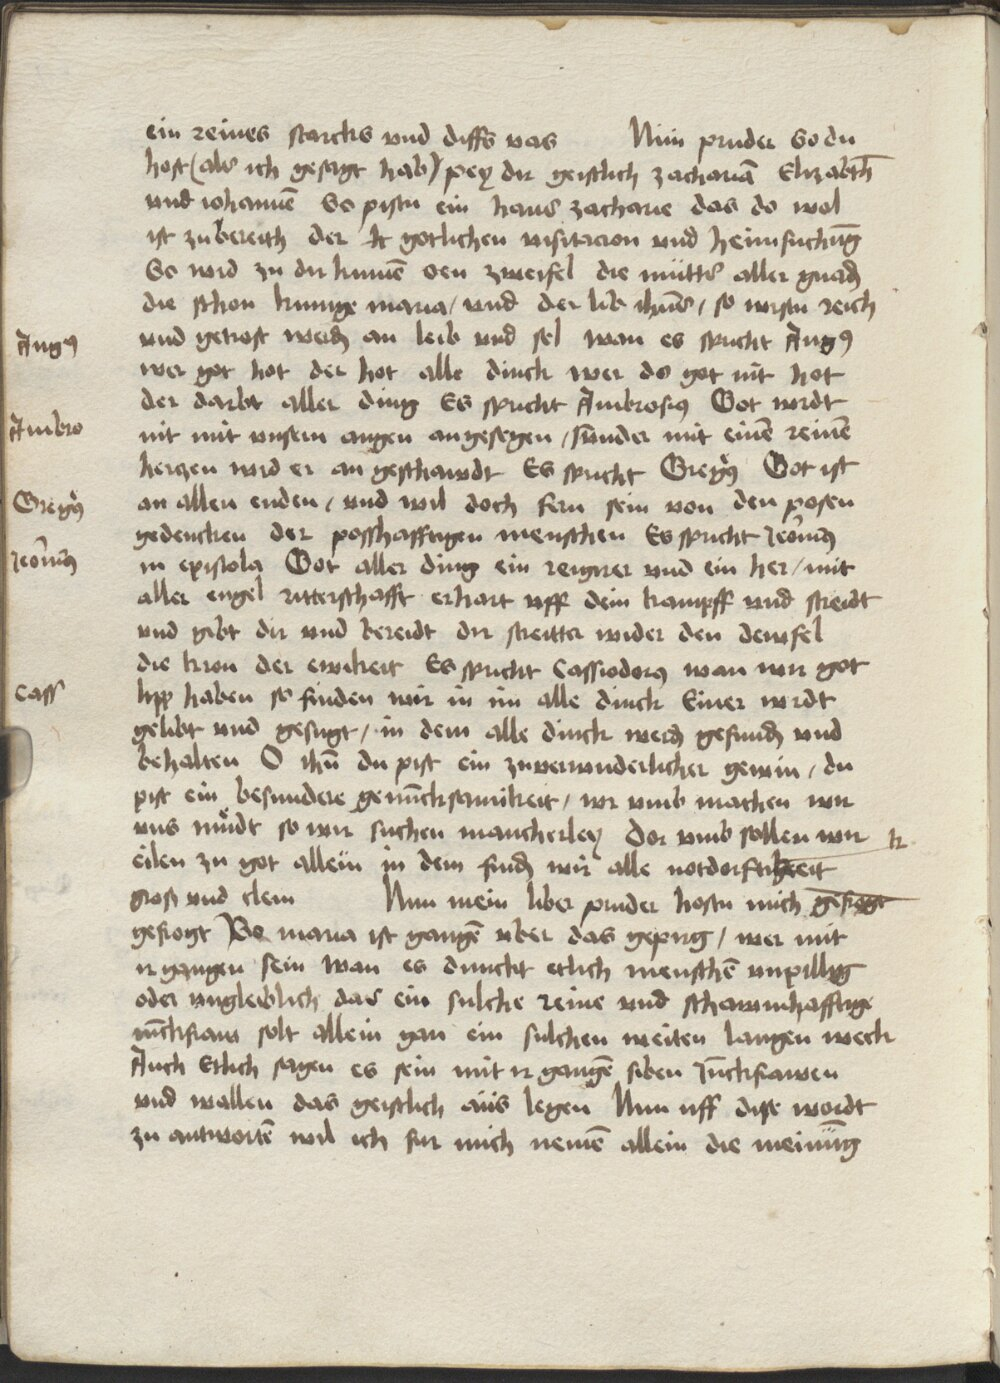 ein reines starcks vnd diffs vas Nun pruder So du
host (als ich gesagt hab) pey dir geistlich zachariā Elizabeth
vnd iohannē So pistu ein haus zacharie das do wol
ist zu bereith der gotlichen visitacion vnd heimsuchūg
So wird zu dir kumē oen zweifel die mutter aller gnadē
die schon kunige maria / vnd der lib ihūs / so wirstu reich
Augꝯ
vnd getrost werdē an leib vnd sel wan es spricht Augꝯ
wer got hot der hot alle dinck wer do got nit hot
der darbt aller ding Es spricht Ambrosiꝯ Got wirdt
Ambro
nit mit vnsern augen angesegen / sunder mit einē reinē
herczen wird er an geschawdt Es spricht Gregꝯ Got ist
Gregꝯ
an allen enden / vnd wil doch fern sein von den posen
gedencken der posshafftigen menschen Es spricht Jeoniꝯ
Jeoniꝯ
in epistola Got aller ding ein reigirer vnd ein her / mit
aller engel ritterschafft erhart vff dein kampff vnd streidt
vnd gibt dir vnd bereidt dir streitter wider den dewfel
die kron der ewikeit Es spricht Cassiodorꝯ wan wir got
Cass
lip haben so finden wir in im alle dinck Einer wirdt
gelibt vnd gesugt / in dem alle dinck werdē gefundē vnd
behalten O ihū du pist ein zuverwunderlicher gewin / du
pist ein besundere genuncksamikeit / wor vmb machen wir
vns mudt so wir suchen mancherley Dor vmb sollen wir
eilen zu got allein in dem findē wir alle notdorftikeit
gros vnd clein Nun mein liber pruder hostu mich gefrogt
gefrogt Wo maria ist gangē vber das gepirg / wer mit
ir gangen sein wan es dunckt etlich menschē vnpillig
oder vngleiblich das ein sulche reine vnd schamhafftige
iunckfraw solt allein gan ein sulchen weiten langen weck
Auch Etlich sagen es sein mit ir gangē siben Junckfrawen
vnd wallen das geistlich aus legen Nun vff dise wordt
zu antwortē wil ich fur mich nemē allein die meinūg